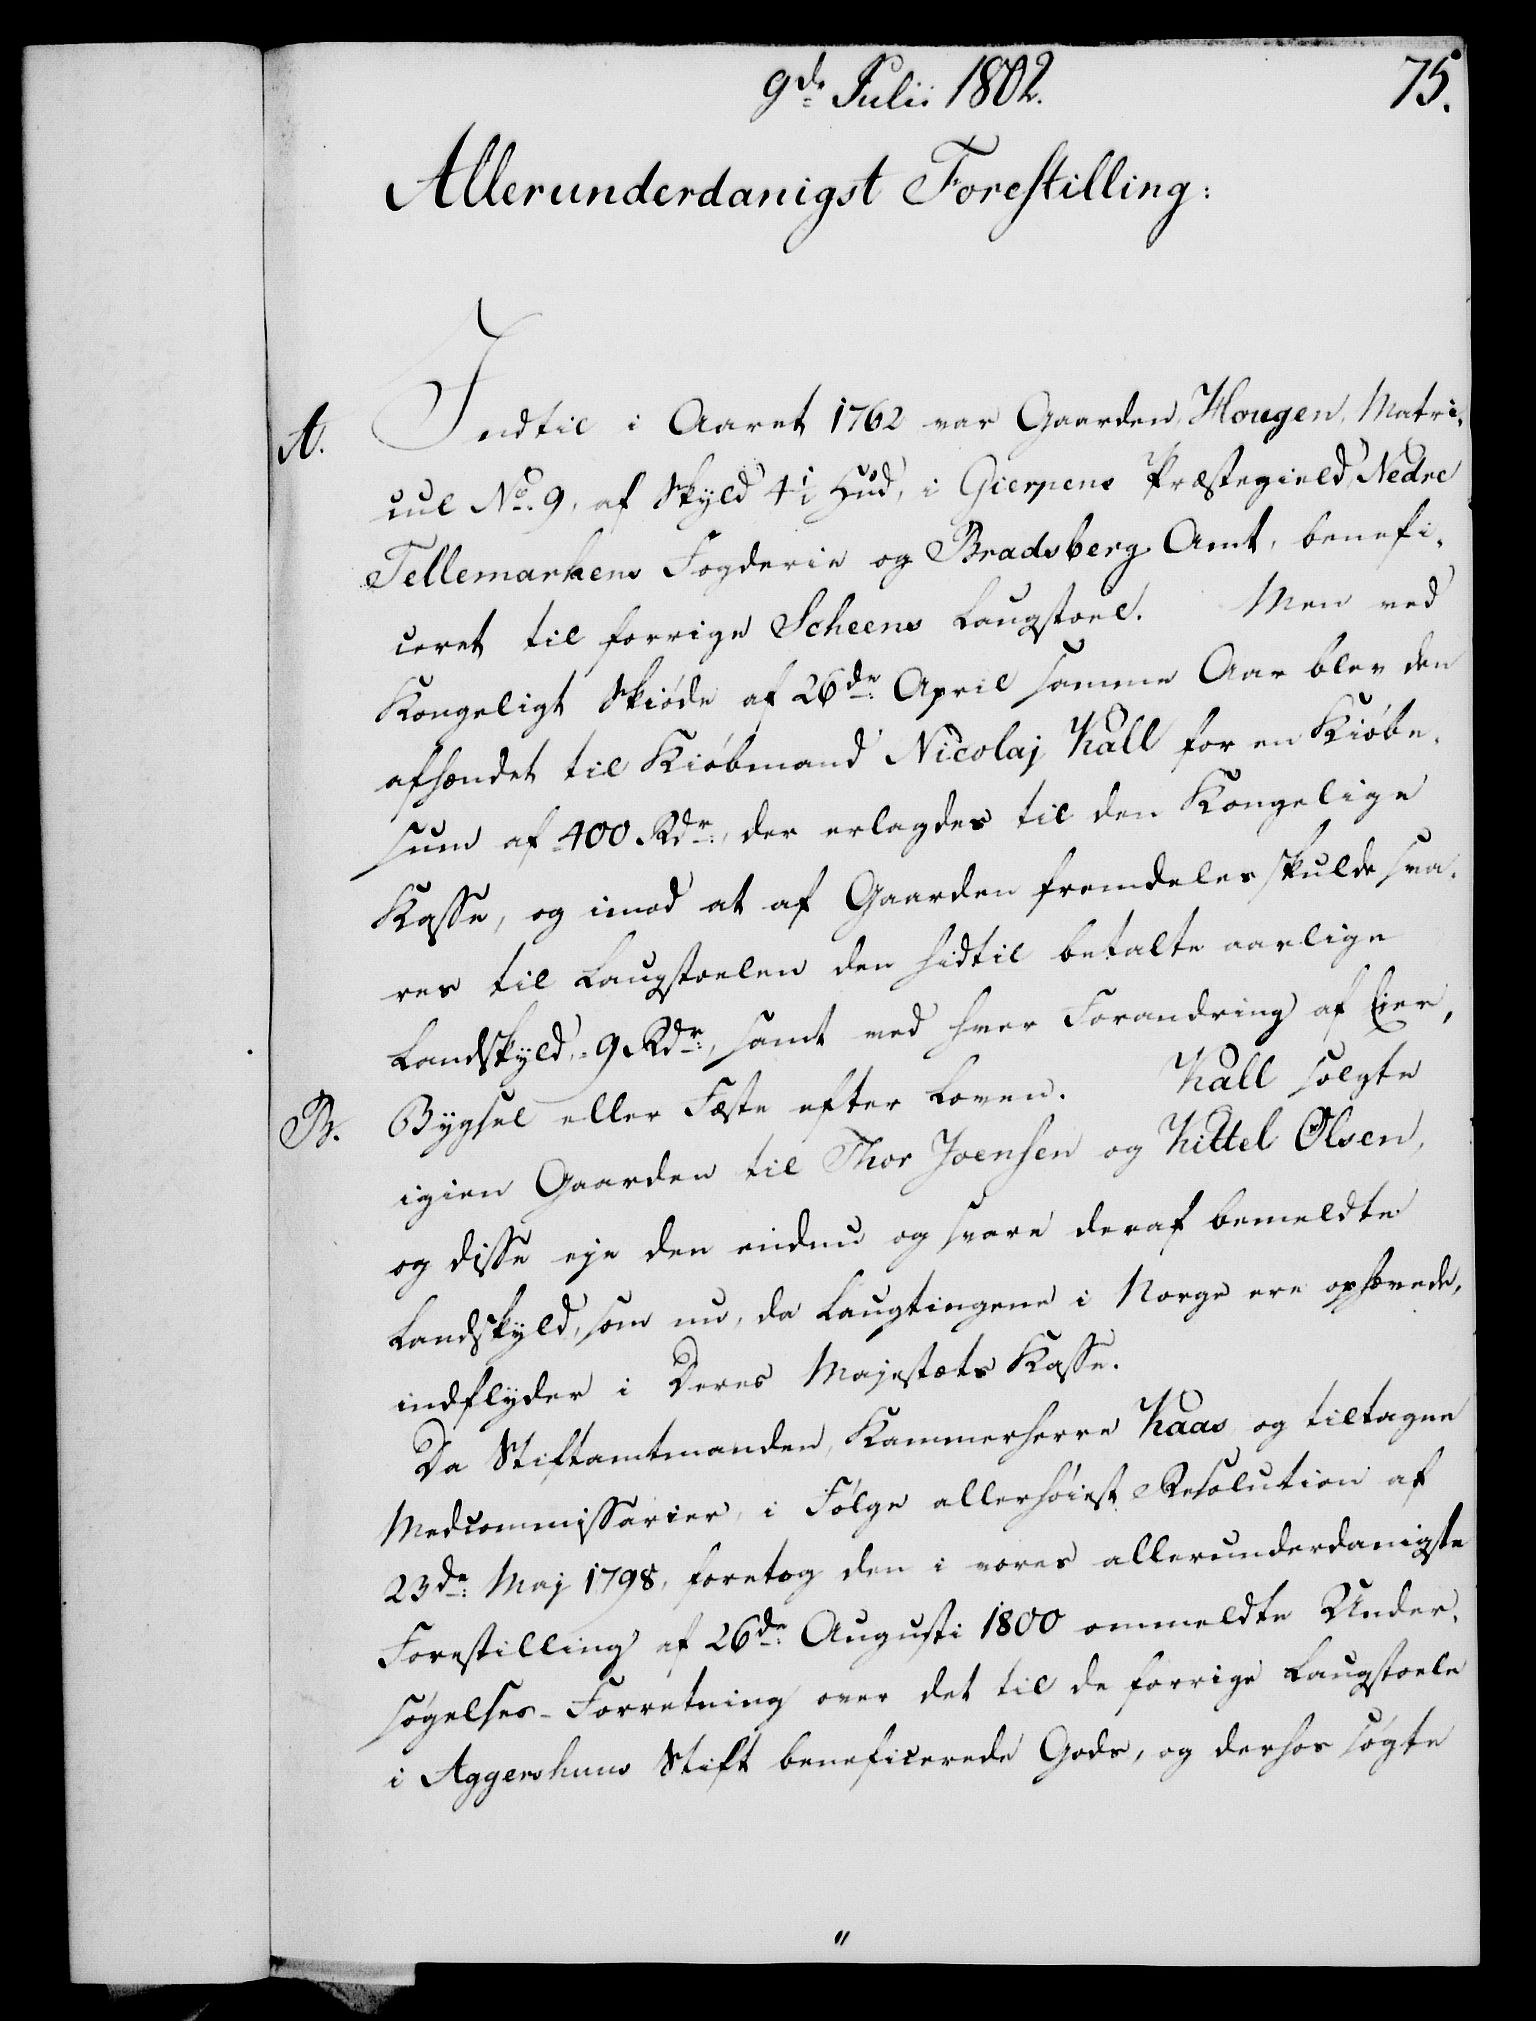 9de Julii 1802.
75.
Allerunderdanigst Forestilling:
A. Indtil i Aaret 1762 var Gaarden Hougen, Matri-
cul No. 9, af Skyld 4 Hud, i Gierpens Præstegield, Nedre
Tellemarkens Fogderie og Bradsberg Amt, benefi-
ceret til forrige Scheens Laugstoel. Men ved
Kongeligt Skiøde af 26de April samme Aar blev den
afhændet til Kiøbmand Nicolaj Kall for en Kiøbe-
sum af 400 Rdr., der erlagdes til den Kongelige
Kasse, og imod at af Gaarden fremdeles skulde sva-
res til Laugstoelen den hidtil betalte aarlige
Landskyld, 9 Rdr., samt ved hver Forandring af Eier,
B. Bygsel eller Fæste efter Loven. Kall solgte
igien Gaarden til Thor Joensen og Kittel Olsen,
og disse eje den endnu og svare deraf bemeldte
Landskyld, som nu, da Laugtingene i Norge ere ophævede,
indflyder i Deres Majestæts Kasse.
Da Stiftamtmanden, Kammerherre Kaas og tiltagne
Medcommissarier, i Følge allerhøiest Resolution af
23de Maj 1798, foretog den i vores allerunderdanigste
Forestilling af 26de Augusti 1800 ommeldte Under-
søgelses-Forretning over det til de forrige Laugstoele
i Aggershuus Stift beneficerede Gods, og derhos søgte
"